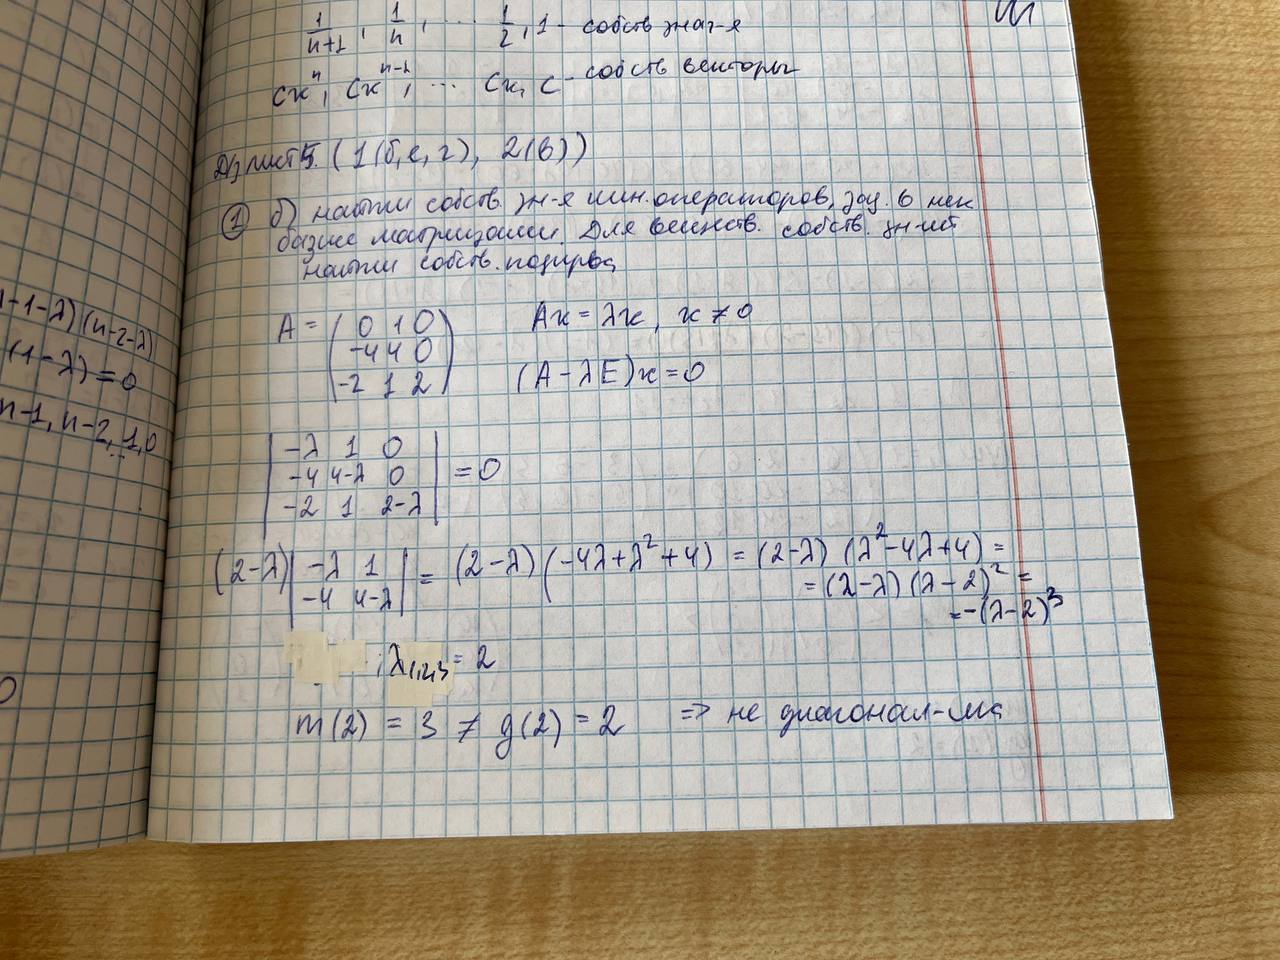 1/(n+1), 1/n, ... 1/2, 1 - собств знач-я
cxⁿ, cxⁿ⁻¹, ... cx, c - собств векторы
Дз лист 5. (1(б,е,г), 2(в))
① б) найти собств. зн-я лин. операторов, зад. в нек
базисе матрицами. Для веществ. собств. зн-ий
найти собств. подпр-ва
A = ( 0 1 0
-4 4 0
-2 1 2 )
Ax = λx, x ≠ 0
(A - λE)x = 0
| -λ 1 0 |
| -4 4-λ 0 | = 0
| -2 1 2-λ |
(2-λ) | -λ 1 | = (2-λ)(-4λ+λ²+4) = (2-λ)(λ²-4λ+4) =
| -4 4-λ |
= (2-λ)(λ-2)² =
= -(λ-2)³
λ₁,₂,₃ = 2
m(2) = 3 ≠ g(2) = 2 ⇒ не диагонал-ма
-1-λ)(n-2-λ)
(1-λ) = 0
n-1, n-2, .. 1, 0